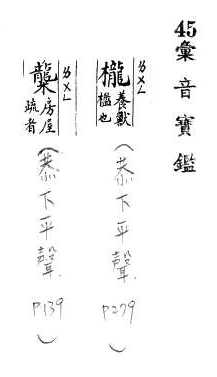 45彙音寶鑑
櫳 ㄌㄨㄥ
養獸
檻也
(恭下平聲 P279)
ㄌㄨㄥ
房屋
疏者
(恭下平聲 P139)